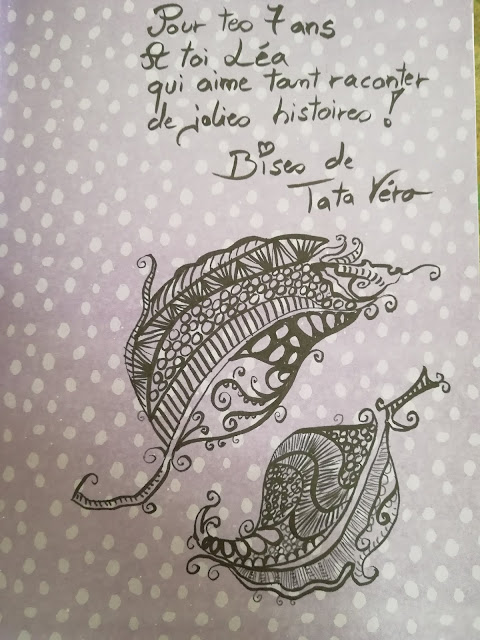 Pour tes 7 ans
A toi Léa
qui aime tant raconter
de jolies histoires !
Bises de
Tata Véro